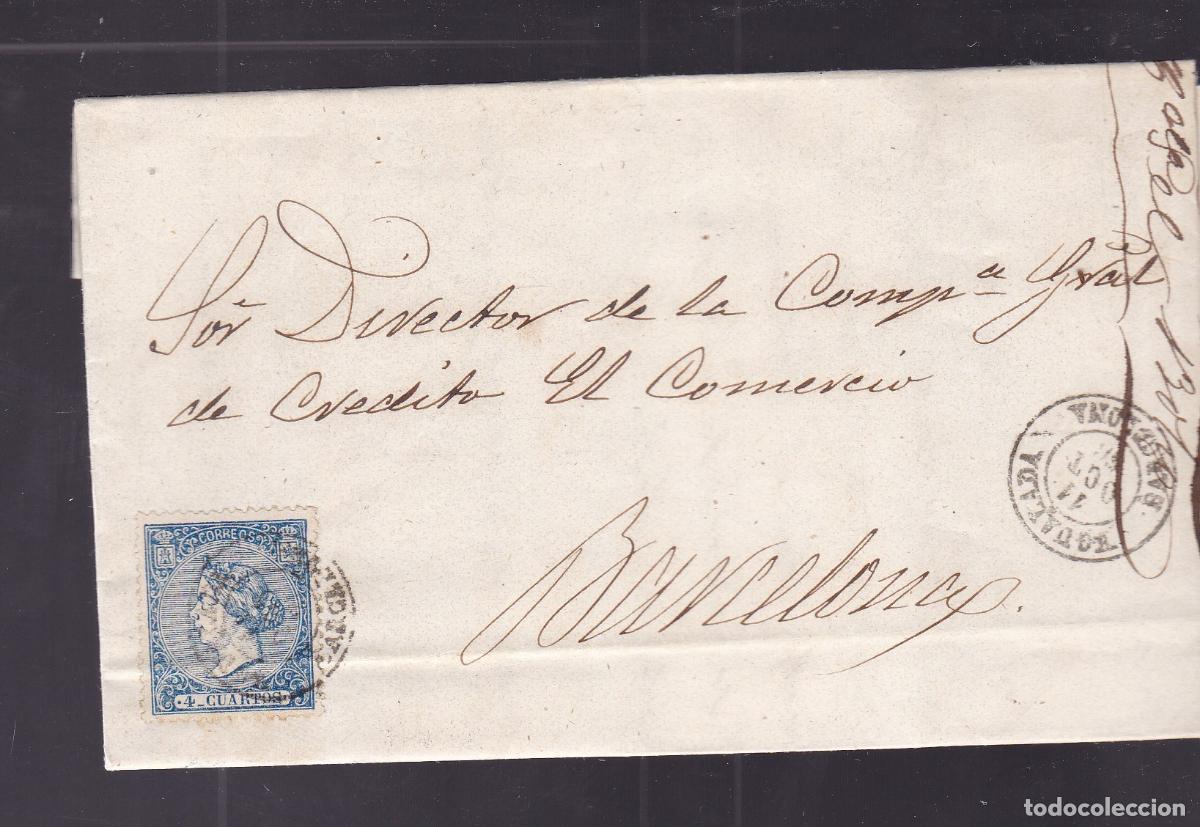 Sor Director de la Compª Gral
de Credito El Comercio
Barcelona
CORREOS
4_CUARTOS
IGUALADA
BARCELONA
11
OCT
todocoleccion